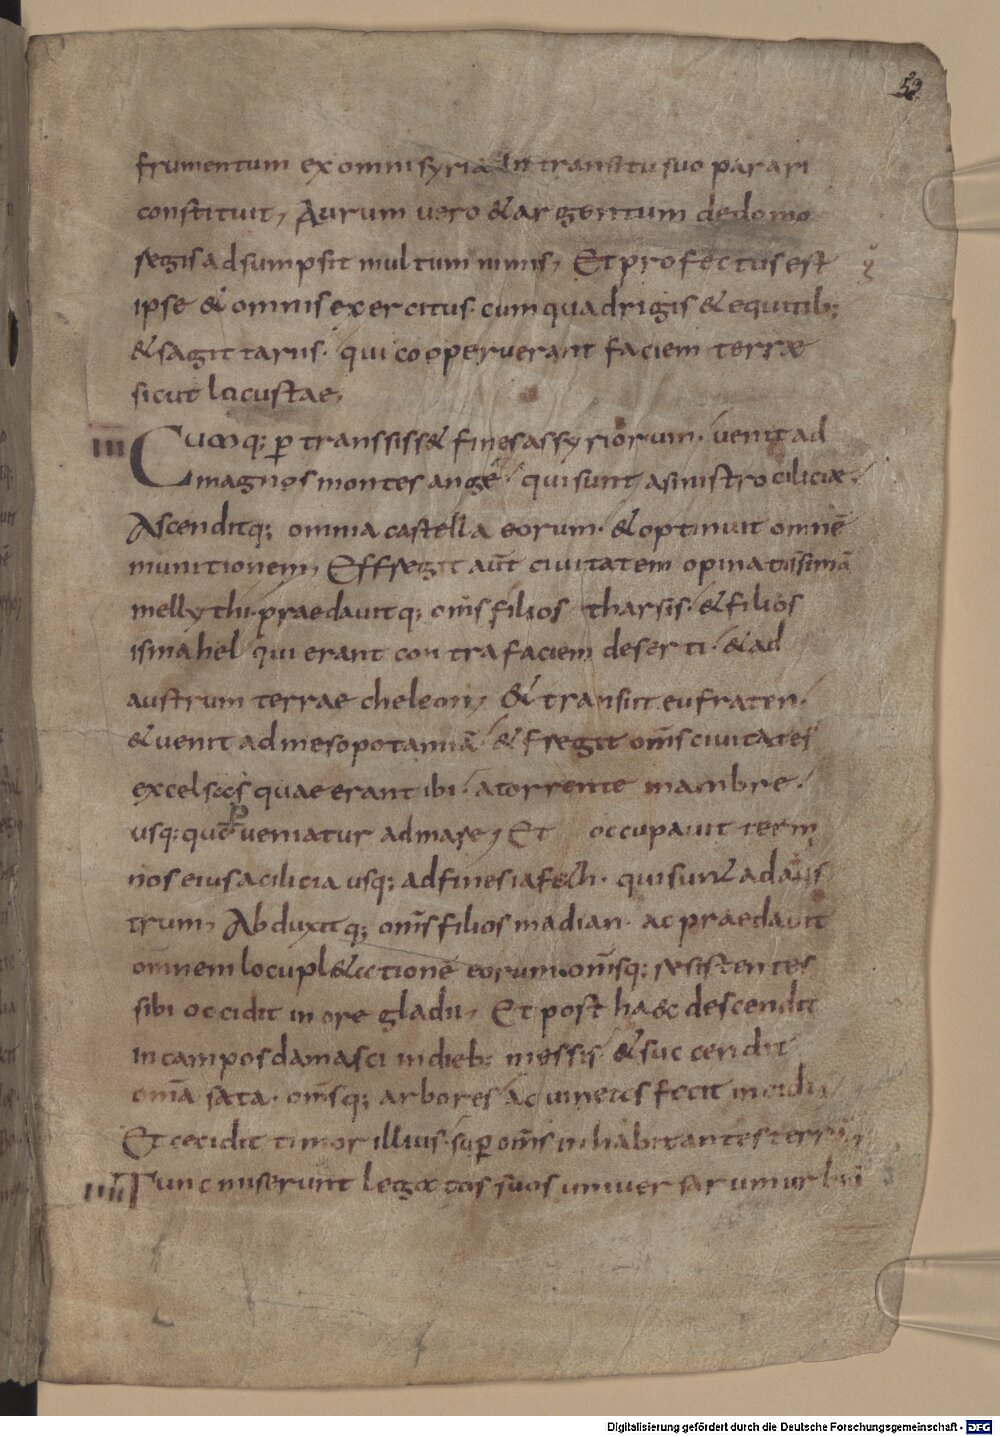 52
frumentum ex omni syria In transitu suo parari
constituit, Aurum uero & argentum dedomo
regis adsumpsit multum nimis, Et profectus est
ipse & omnis exercitus. cum quadrigis & equitib;
& sagittariis. qui cooperuerant faciem terrae
sicut locustae,
III Cumq; ꝑtranssiss& fines assyriorum. uenit ad
magnos montes angę. qui sunt asinistro ciliciae.
Ascenditq; omnia castella eorum. & optinuit omnē
munitionem, Effregit aūt ciuitatem opinatissimā
mellythi. praedauitq; om̄s filios tharsis. & filios
ismahel qui erant contra faciem deserti. & ad
austrum terrae cheleon, & transiit eufraten.
& uenit ad mesopotamiā. & fregit om̄s ciuitates
excelsas quae erant ibi. atorrente mambre.
usq; quo ꝑueniatur ad mare, Et occupauit termi
nos eius acilicia usq; ad fines iafeth. qui sunt ad aus
trum, Abduxitq; om̄s filios madian. ac praedauit
omnem locupl&ationē eorum. om̄sq; resistentes
sibi occidit in ore gladii, Et post haec descendit
in campos damasci in dieb; messis. & succendit
om̄a sata. om̄sq; arbores ac uineas fecit incidi,
Et cecidit timor illius. suꝑ om̄s inhabitantes terrā,
IIII Tunc miserunt legatos suos uniuersarum urbiū
Digitalisierung gefördert durch die Deutsche Forschungsgemeinschaft - DFG